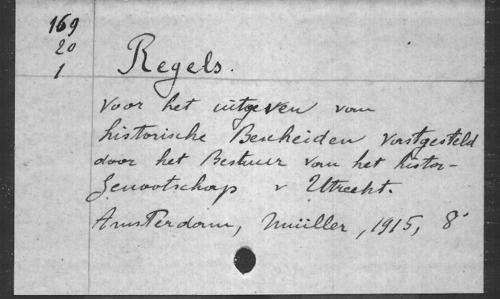 169
20
1
Regels.
voor het uitgeven van
historische Bescheiden vastgesteld
door het Bestuur van het histor-
Genootschap v Utrecht.
Amsterdam, Müller, 1915, 8°